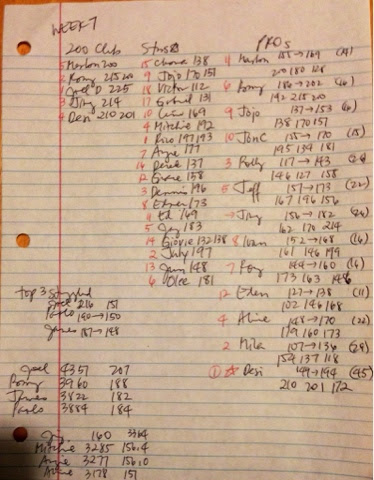 WEEK 7
200 Club
5 Marlon 200
2 Romy 215 200
1 Joel D 225
3 Jing 214
4 Desi 210 201
Stus
15 Chona 138
9 Jojo 170 151
18 Victor 112
17 Gabriel 131
10 169
4 Mitchie 192
1 Rico 197 193
7 Ange 177
16 Derek 137
12 Grace 158
3 Dennis 196
8 173
11 Ed 169
5 Jay 183
14 Giovie 132 138
2 July 197
13 Jun 148
6 181
PROs
11 Marlon 155→169 (14)
200 180 128
6 Romy 180→202
192 215 200
9 Jojo 137→153 (16)
138 170 157
10 Jon C 155→170 (15)
195 139 181
3 117→143
146 127 158
5 Jeff 151→173 (22)
167 196 156
Jing 156→182 (26)
162 170 214
8 Ivan 152→168 (16)
161 146 199
7 144→160 (16)
173 163 146
12 Eden 127→138 (11)
102 146 168
4 Aline 148→170 (22)
179 160 173
2 Mila 107→136 (29)
154 137 118
1 Desi 149→194 (45)
210 201 172
Top 3 Struggled
Joel 216 151
Paolo 190→150
James 187→148
Joel 4357 207
Romy 3960 188
James 3822 182
Paolo 3884 184
Jay 160
Mitchie 3285 156.4
Ange 3277 156.10
Aline 3178 151